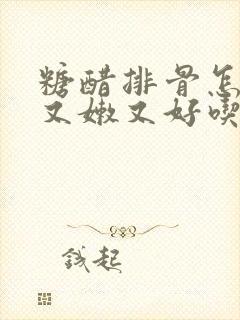 糖醋排骨怎
又嫩又好喫
钱起